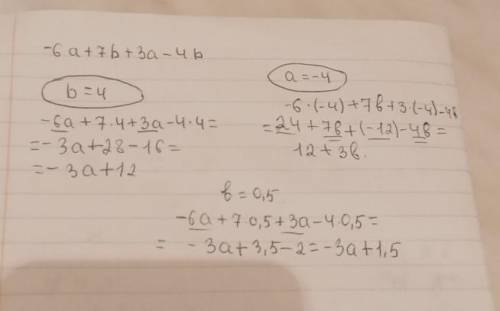 -6a+7b+3a-4b
b=4
-6a+7·4+3a-4·4=
=-3a+28-16=
=-3a+12
a=-4
-6·(-4)+7b+3·(-4)-4b
=24+7b+(-12)-4b=
12+3b.
b=0,5
-6a+7·0,5+3a-4·0,5=
= -3a+3,5-2=-3a+1,5